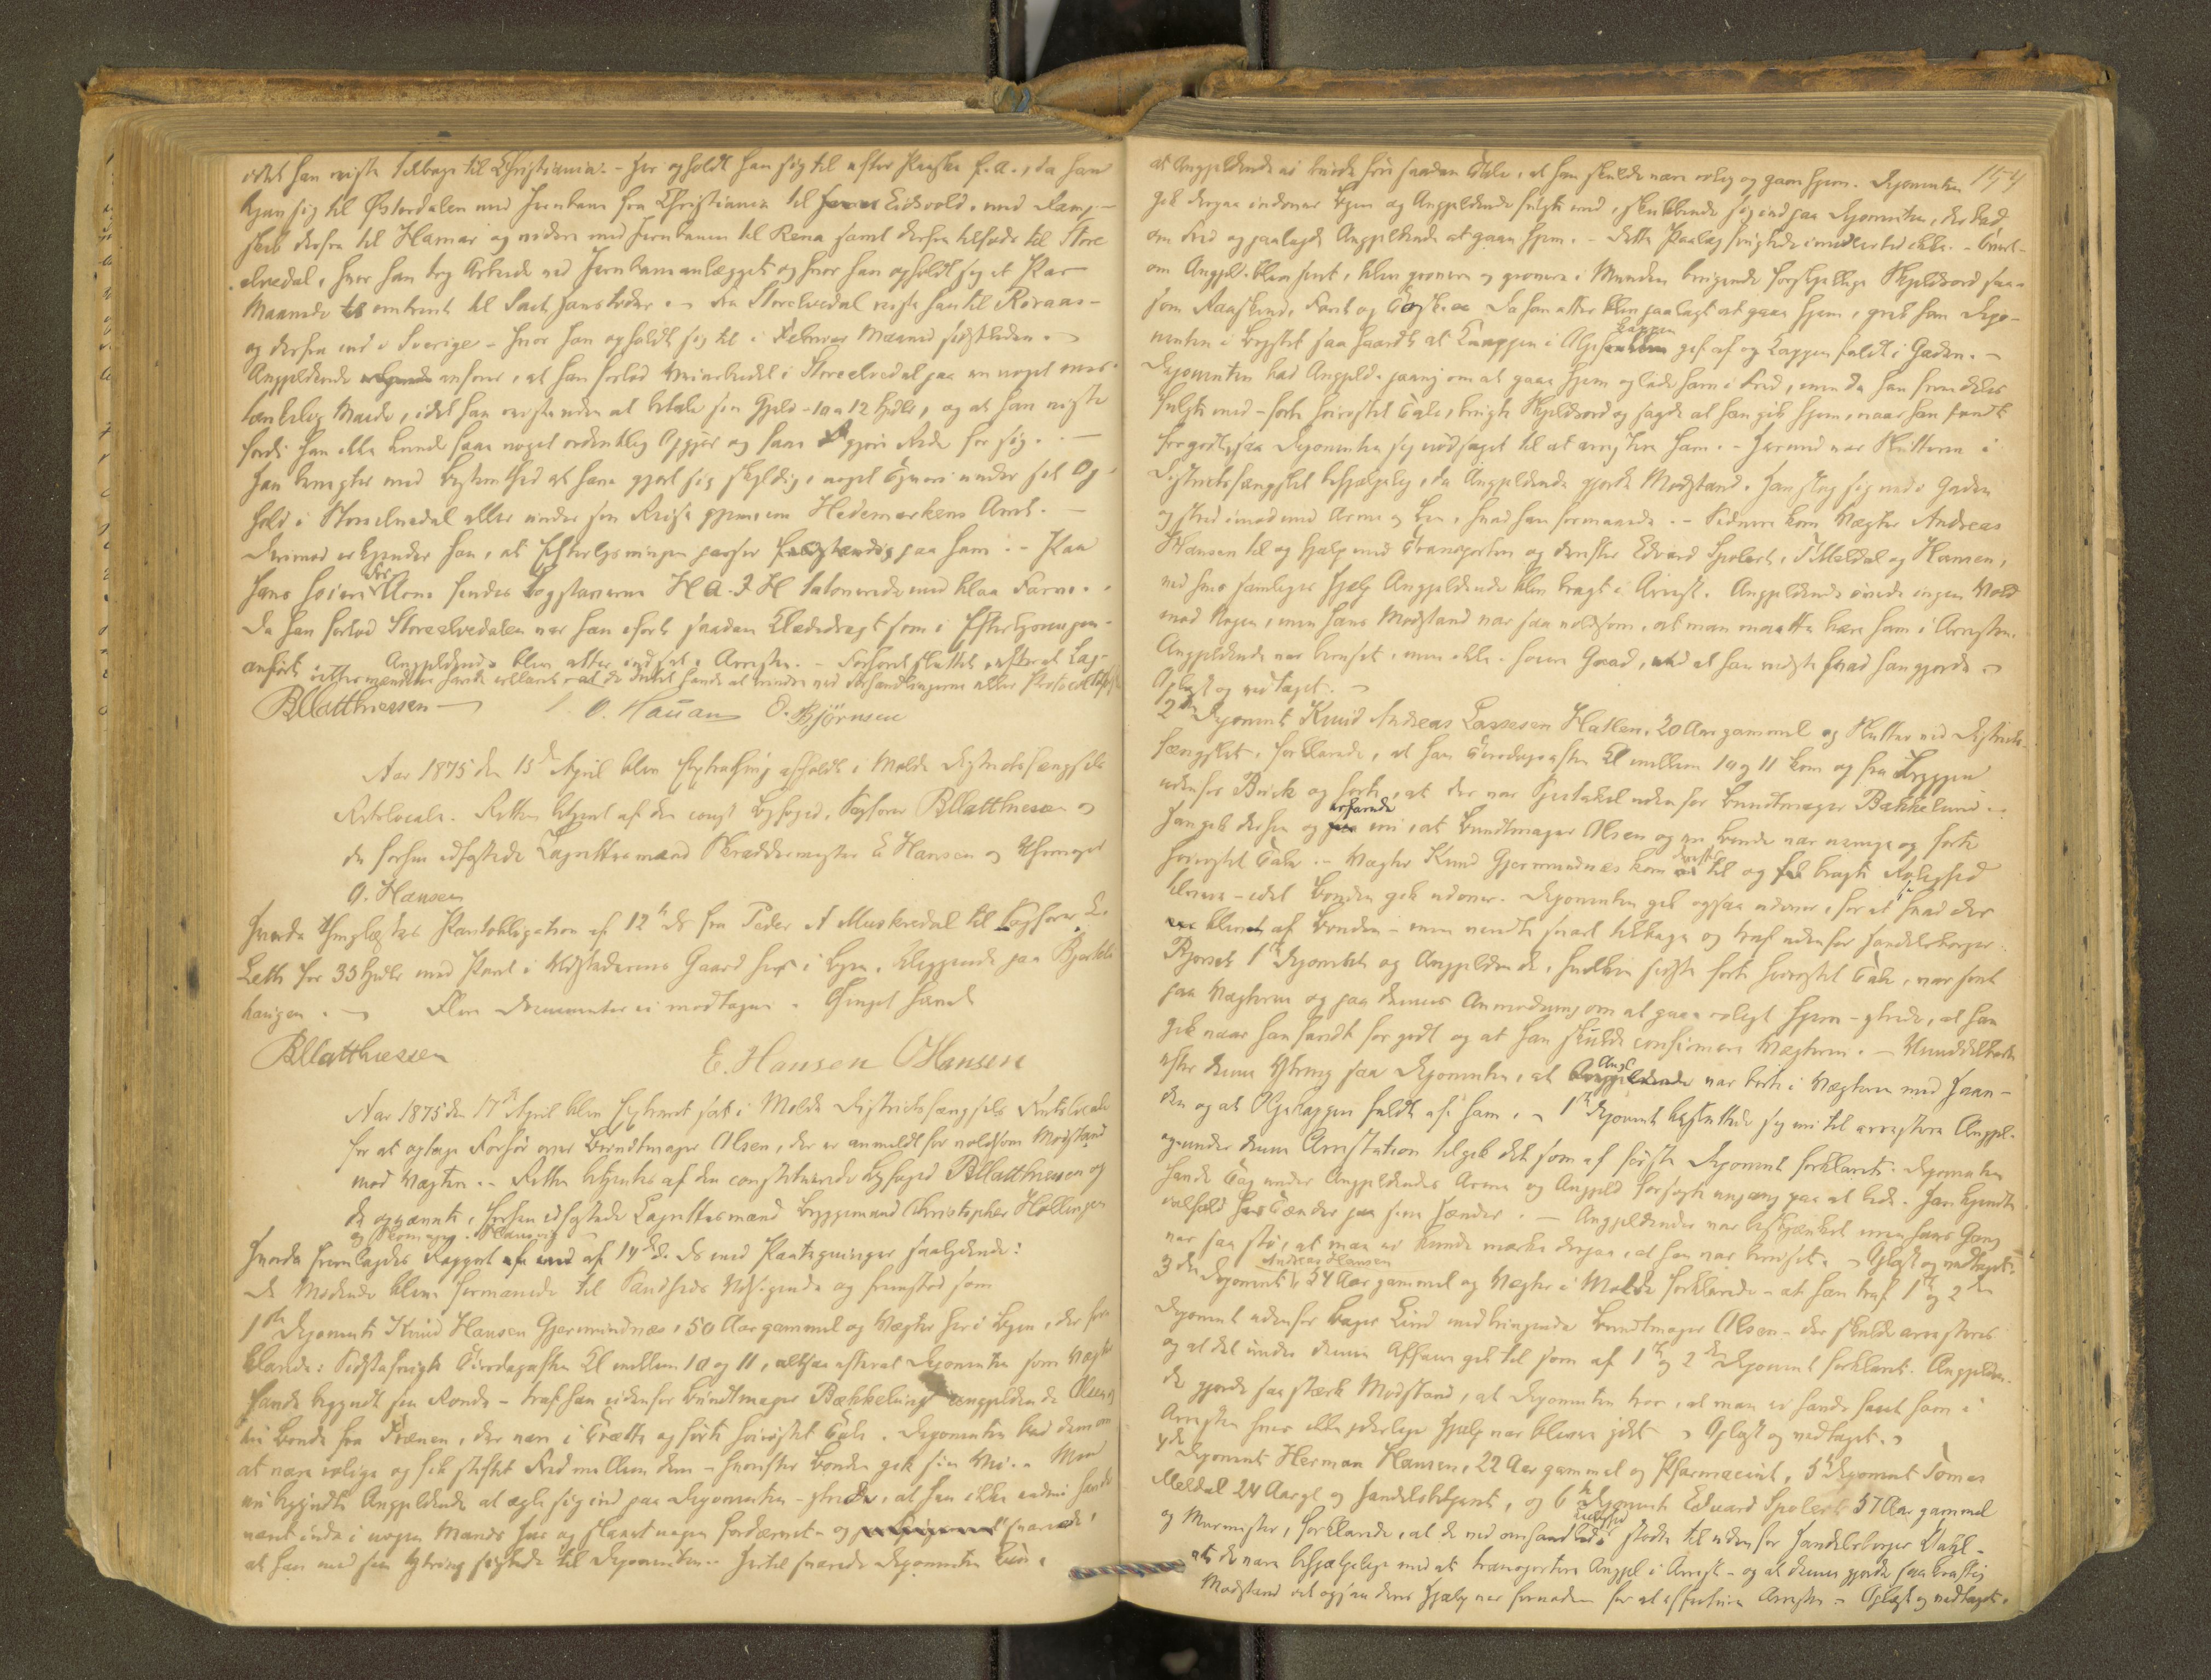 idet han reiste tilbage til Christiania. - Her opholdt han sig til efter Paaske f.A., da han
begav sig til Østerdalen med Jernbane fra Christiania til Eidsvold, med Damp-
skib derfra til Hamar og videre med Jernbanen til Rena samt derfra tilfods til Store
elvedal, hvor han tog Arbeide ved Jernbaneanlægget og hvor han opholdt sig et Par
Maaneder til omtrent til Sanct Hanstider. - Fra Storelvedal reiste han til Røraas -
og derfra ind i Sverige - hvor han opholdt sig til i Februar Maaned sidstleden. -
Angjeldende anfører, at han forlod Arbeidet i Storeelvedal paa en noget mis-
tænkelig Maade, idet han reiste uden at betale sin Gjeld - 10 a 12 Spdlr, og at han reiste
fordi han ikke kunde faae noget ordentlig Opgjør og saa gjøre Rede for sig. -
Han benegter med Bestemthed at have gjort sig skyldig i noget Tyveri under sit Op-
hold i Storelvedal eller under sin Reise gjennem Hedemarkens Amt. -
Derimod erkjender han, at Efterlysningen passer fuldstændig paa ham. - Paa
hans høire Arm findes Bogstaverne H A. J H tatoverede med blaa Farve. -
Da han forlod Storeelvedalen var han iført saadan Klædedragt som i Efterlysningen
anført. Angjeldende blev atter indsat i Arresten. - Forhøret sluttet, efterat Lag-
rettesmændene havde erklæret at de intet havde at erindre ved Forhandlingerne eller Protocoltilførslen
BMatthiessen O. Hauan O. Bjørnsen
Aar 1875 den 15de April blev Extrathing afholdt i Molde Districtsfængsels
Retslocale. Retten betjent af den const. Byfoged, Sagfører BMatthiessen og
de forhen edfæstede Lagrettesmænd Skreddermester E Hansen og
O. Hansen
Hvorda thinglæstes Pantobligation af 12te ds fra Peder A Muskvedal til Sagfører L.
Leth for 33 Spdlr med Pant i Udstederens Gaard her i Byen, beliggende paa Bjørkle
haugen. - Flere Documenter ei modtagne. Thinget hævet
BMatthiessen E. Hansen OHansen
Aar 1875 den 17de April blev Extraret sat i Molde Districtsfængsels Retslocale
for at optage Forhør over Bundtmager Olsen, der er anmeldt for voldsom Modstand
mod Vægteren. - Retten betjentes af den constituerede Byfoged BMatthiessen og
de opnævnte, forhen edfæstede Lagrettesmænd Byggemand Christopher Hollingen
og Skomager
Hvorda fremlagdes Rapport af 14de ds med Paategninger saalydende:
De Mødende bleve formanede til Sandheds Udsigende og fremstod som
1ste Deponent Knud Hansen Gjermundnæs, 50 Aar gammel og Vægter her i Byen, der for
klarede: Sidstafvigte Tirsdagsaften Kl mellem 10 og 11, altsaa efterat Deponenten som Vægter
havde begyndt sin Ronde - traf han udenfor Bundtmager Bækkelund angjeldende Olsen og
en Bonde fra Frænen, der vare i Trætte og førte høirøstet Tale. Deponenten bad dem om
at være rolige og fik stiftet Fred mellem dem - hvorefter Bonden gik sin Vei. - Men
nu begyndte Angjeldende at egle sig ind paa Deponenten - ytrede, at han ikke endnu havde
været inde i nogen Mands Hus og slaaet nogen fordærvet - og svarede,
at han med sin Ytring sigtede til Deponenten. - Hertil svarede Deponenten kun,
154
at Angjeldende ei burde føre saadan Tale, at han skulde være rolig og gaa hjem. Deponenten
gik derpaa indover Byen og Angjeldende fulgte med, skubbende sig ind paa Deponenten, der bad
om Fred og paalagde Angjeldende at gaa hjem. - Dette Paalæg frugtede imidlertid ikke. - Tvert-
om Angjeld. blev først, blev grovere og grovere i Munden brugende forskjellige Skjeldsord saa-
som Raaskind, Fant og Da han atter blev paalagt at gaa hjem, greb han Depo-
nenten i Brystet saa haardt at Knappen i Kappen gik af og Kappen faldt i Gaden. -
Deponenten bad Angjeld. paany om at gaa hjem og lade ham i Fred, men da han fremdeles
fulgte med - førte høirøstet Tale, brugte Skjeldsord og sagde at han gik hjem, naar han fandt
for godt, saa Deponenten sig nødsaget til at arrestere ham. - Herved var Slutteren i
Districtsfængslet behjælpelig, da Angjeldende gjorde Modstand. Han slog sig ned i Gaden
og stred imod med Arme og Ben, hvad han formaaede. - Sidenere kom Vægter Andreas
Hansen til og hjalp med Transporten og derefter Edvard Spolert, T Meldal og Hansen,
ved hvis samlige Hjælp Angjeldende blev bragt i Arrest. Angjeldende øvede ingen Vold
mod Nogen, men hans Modstand var saa voldsom, at man maatte bære ham i Arresten.
Angjeldende var beruset, men ikke i høiere Grad, end at han vidste hvad han gjorde -
Oplæst og vedtaget. -
2den Deponent Knud Andreas Lassesen Hatlen, 20 Aar gammel og Slutter ved Districts-
fængslet, forklarede, at han Tirsdagsaften Kl mellem 10 og 11 kom op fra Bryggen
udenfor Brick og hørte, at der var Spetakel udenfor Bundtmager Bækkelund. -
Han gik derhen og erfarede nu, at Bundtmager Olsen og en Bonde var uenige og førte
høirøstet Tale. - Vægter Knud Gjermundnæs kom derefter til og bragte Rolighed
tilveie - idet Bonden gik udover. Deponenten gik ogsaa udover, for at se hvad der
blev af Bonden - men vendte snart tilbage og traf udenfor Handelsborger
Bjørset 1ste Deponent og Angjeldende, hvilken sidste førte høirøstet Tale, var først
paa Vægteren og paa dennes Anmodning om at gaa roligt hjem - ytrede, at han
gik naar han fandt for godt og at han skulde confirmere Vægteren. - Umiddelbart
efter denne Ytring saa Deponenten, at Angjl. var borte i Vægteren med Haan-
den og at Kappen faldt af ham. - 1ste Deponent besluttede sig nu til arrestere Angjel.
og under denne Arrestation tilgik det som af første Deponent forklaret. Deponenten
havde Tag under Angjeldendes Arme og Angjeld forsøgte engang paa at bide. Han kjendte
ialfald hans Tænder paa sine Hænder. - Angjeldende var beskjænket men hans Gang
var saa stø, at man ei kunde mærke derpaa, at han var beruset. - Oplæst og vedtaget. -
3die Deponent Andreas Hansen 54 Aar gammel og Vægter i Molde forklarede - at han traf 1ste og 2den
Deponent udenfor Bager Lind medbringende Bundtmager Olsen - der skulde arresteres
og at det under denne Affaire gik til som af 1ste og 2den Deponent forklaret. Angjelden-
de gjorde saa stærk Modstand, at Deponenten tror, at man ei havde faaet ham i
Arresten hvis ikke yderligere Hjælp var bleven ydet - Oplæst og vedtaget. -
4de Deponent Herman Hansen, 22 Aar gammel og Pharmaceut, 5te Deponent Tomas
Meldal 24 Aar gl og Handelsbetjent, og 6te Deponent Edvard Spolert 37 Aar gammel
og Murmester, forklarede, at de ved omhandlede Leilighed stødte til udenfor Handelsborger Dahl -
at de vare behjælpelige med at transportere Angjel i Arrest - og at denne gjorde saa kraftig
Modstand at ogsaa deres Hjælp var fornøden for at effectuere Arresten - Oplæst og vedtaget.